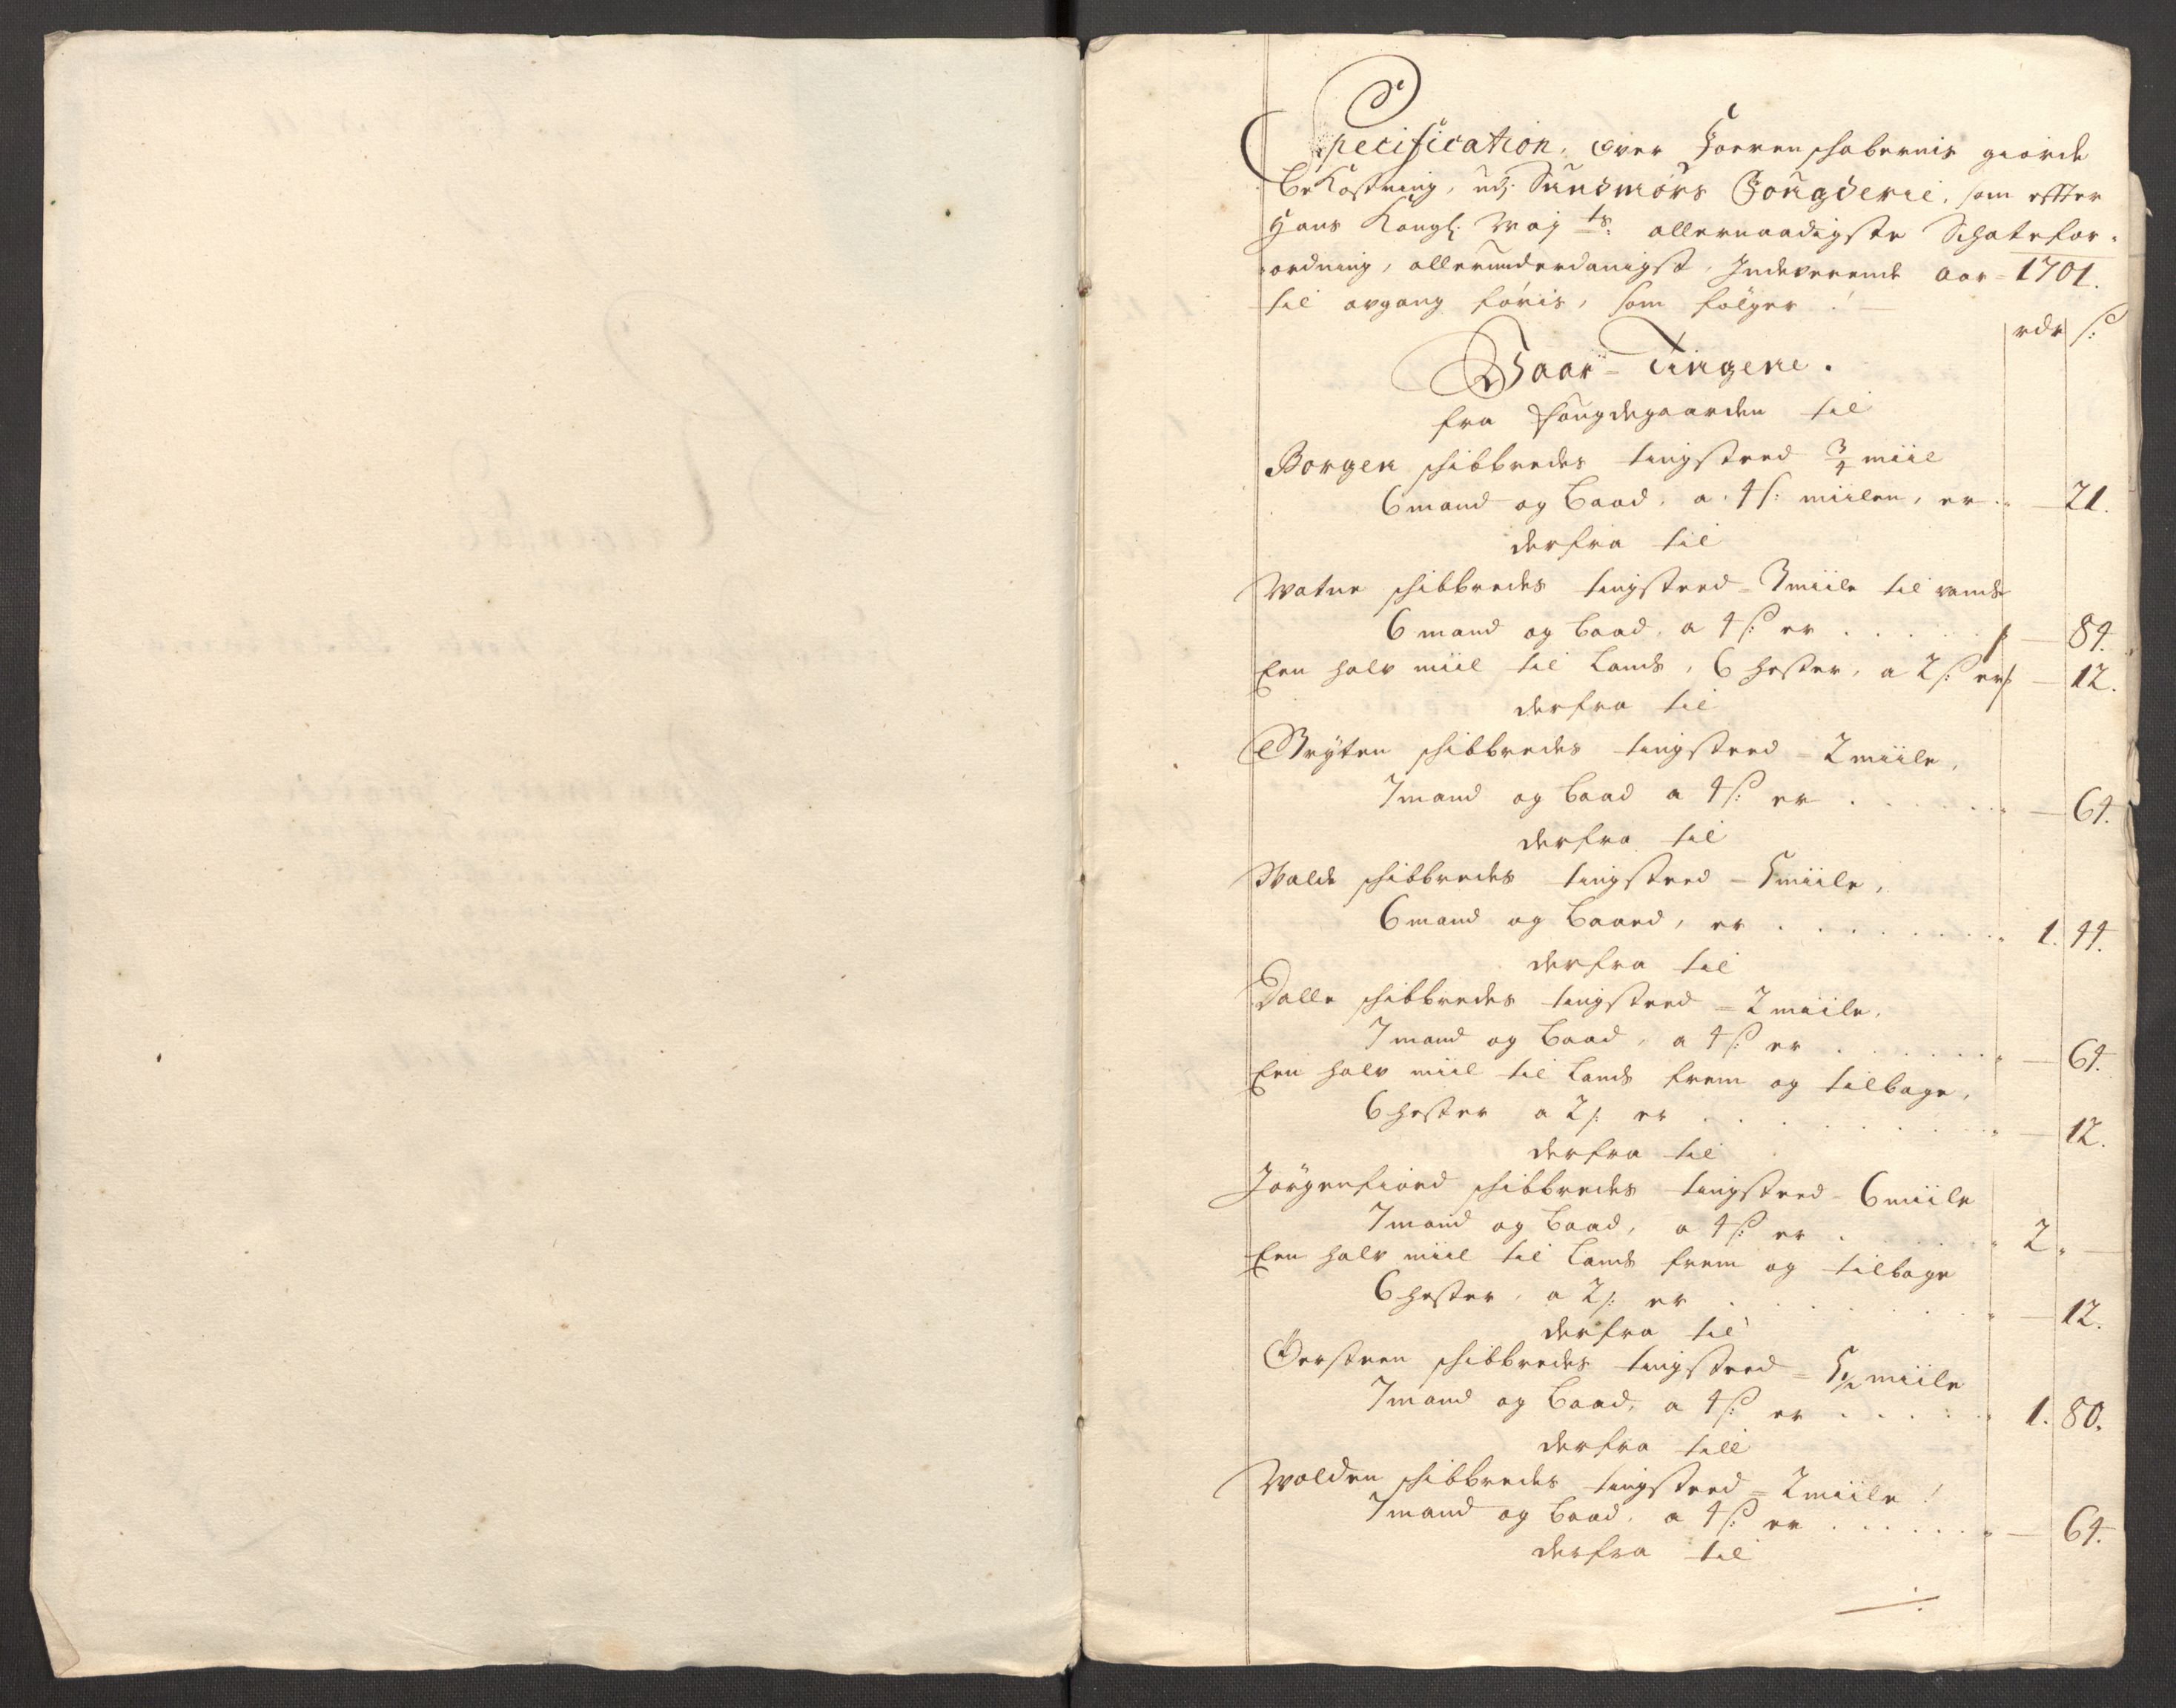 Specification, over Foerenschabernis giorde
bekostning, udj Sundmørs Fougderie, som effter
Hans Kongl: Maj ts: allernaadigste Schatefor-
ordning, allerunderdanigst, Indeverende aar 1701.
til avgang føris, som følger !
rdr ß:
Vaar-Tingene.
fra Fougdegaarden til
Borgen schibbredes tingsteed 3/4 miil
6 mand og Baad, a. 4 ß: miilen, er — 21.
derfra til
Watne schibbredes tingsteed = 3 miile til vands
6 mand og baad, a 4 ß: er — 84.
Een halv miil til Lands, 6 hester, a 2 ß: er — 12.
derfra til
Gryten schibbredes tingsteed = 2 miile,
7 mand og baad a 4 ß: er — 64.
derfra til
Walde schibbredes tingsteed = 5 miile,
6 mand og Baad, er 1. 44.
derfra til
Dalle schibbredes tingsteed = 2 miile,
7 mand og baad, a 4 ß: er — 64.
Een halv miil til Lands frem og tilbage,
6 hester a 2 ß: er — 12.
derfra til
Jørgenfiord schibbredes tingsteed = 6 miile
7 mand og baad, a 4 ß: er 2. —
Een halv miil til Lands frem og tilbage
6 hester, a 2 ß: er — 12.
derfra til
Øersteen schibbredes tingsteed = 5 1/2 miile
7 mand og baad, a 4 ß: er 1. 80.
derfra till
Wolden schibbredes tingsteed = 2 miile !
7 mand og baad, a 4 ß: er — 64.
derfra til